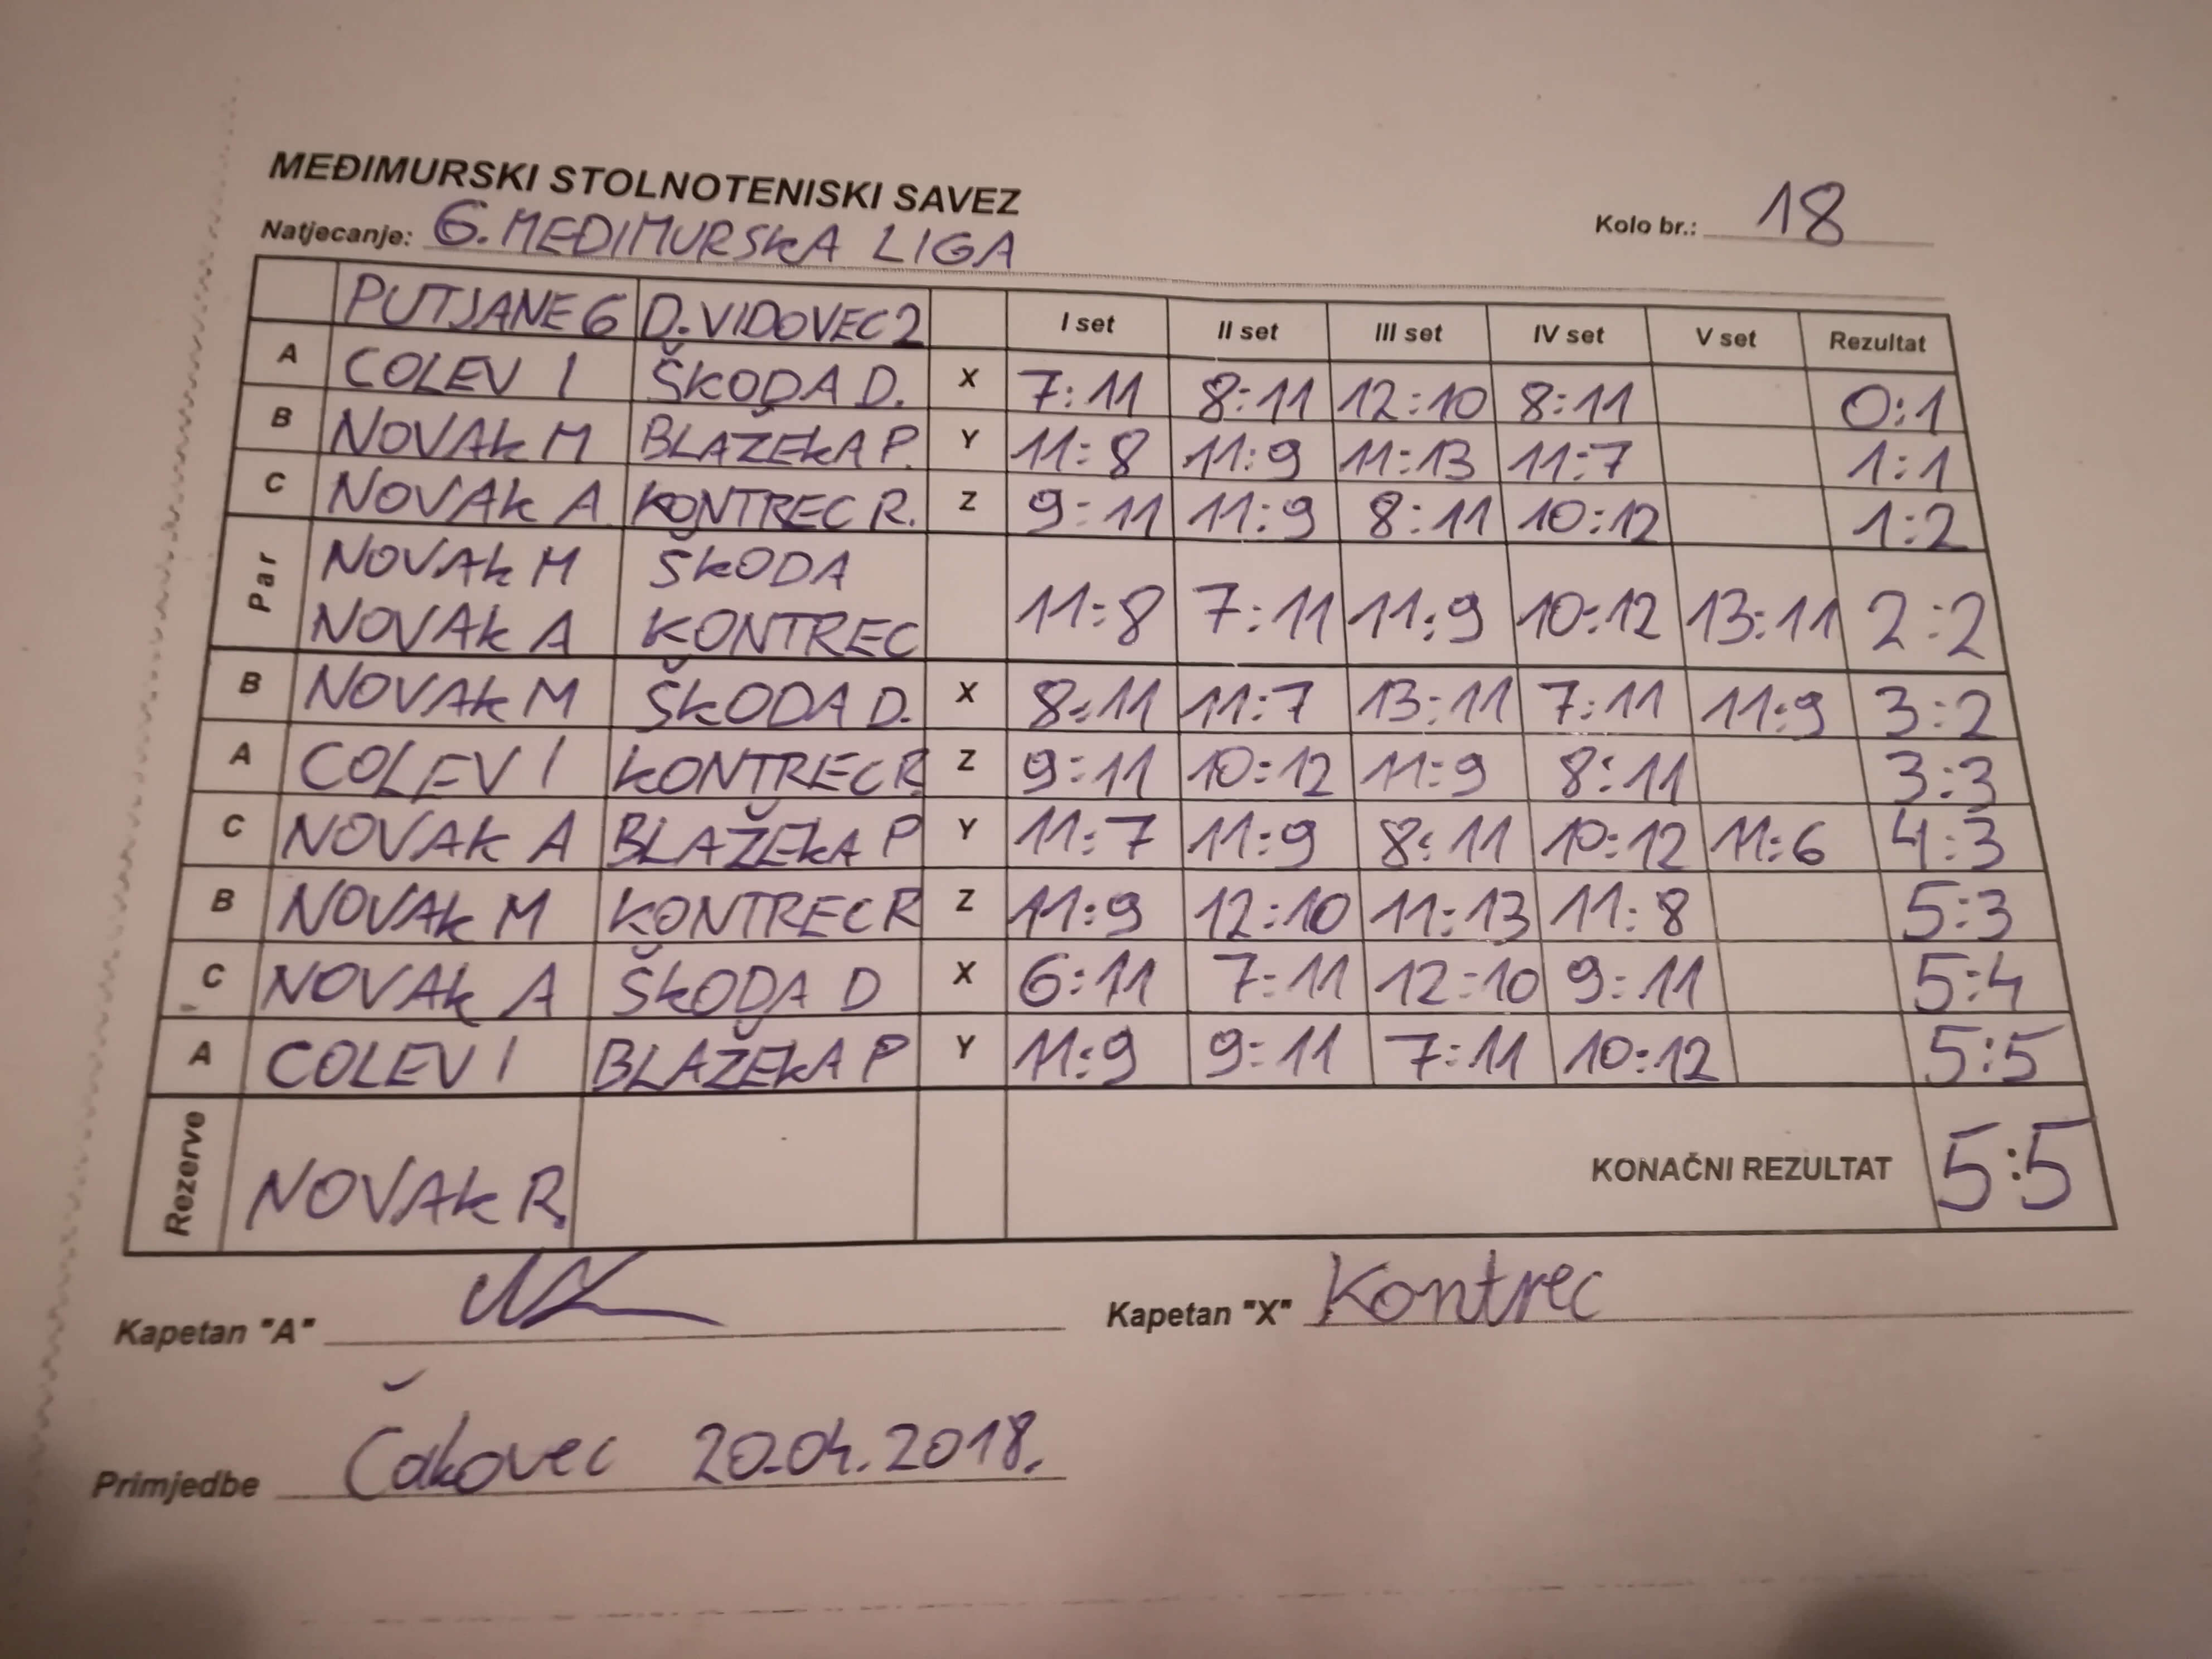 MEĐIMURSKI STOLNOTENISKI SAVEZ
Natjecanje: 6. MEĐIMURSKA LIGA Kolo br.: 18
PUTJANE 6 D. VIDOVEC 2 I set II set III set IV set V set Rezultat
A COLEV I ŠKODA D. X 7:11 8:11 12:10 8:11 0:1
B NOVAK M BLAŽEKA P. Y 11:8 11:9 11:13 11:7 1:1
C NOVAK A. KONTREC R. Z 9:11 11:9 8:11 10:12 1:2
Par NOVAK M ŠKODA
NOVAK A KONTREC 11:8 7:11 11:9 10:12 13:11 2:2
B NOVAK M ŠKODA D. X 8:11 11:7 13:11 7:11 11:9 3:2
A COLEV I KONTREC R Z 9:11 10:12 11:9 8:11 3:3
C NOVAK A BLAŽEKA P Y 11:7 11:9 8:11 10:12 11:6 4:3
B NOVAK M KONTREC R Z 11:9 12:10 11:13 11:8 5:3
C NOVAK A ŠKODA D X 6:11 7:11 12:10 9:11 5:4
A COLEV I BLAŽEKA P Y 11:9 9:11 7:11 10:12 5:5
Rezerve NOVAK R. KONAČNI REZULTAT 5:5
Kapetan "A" Kapetan "X" Kontrec
Primjedbe Čakovec 20.04.2018.